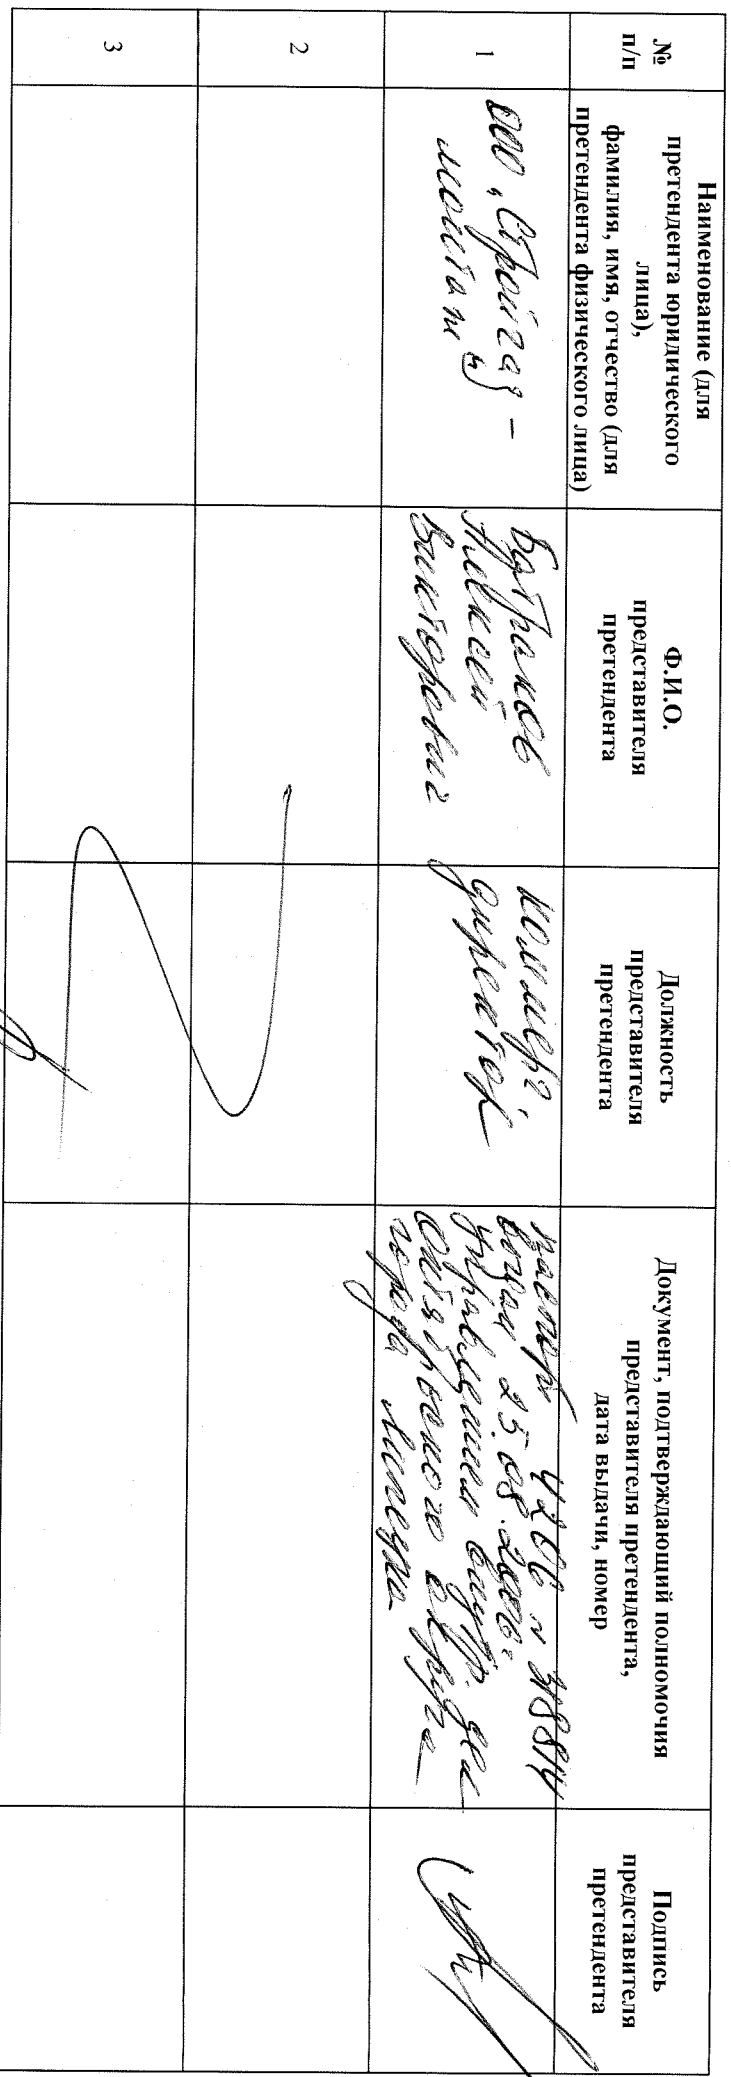 №
п/п
Наименование (для
претендента юридического
лица),
фамилия, имя, отчество (для
претендента физического лица)
Ф.И.О.
представителя
претендента
Должность
представителя
претендента
Документ, подтверждающий полномочия
представителя претендента,
дата выдачи, номер
Подпись
представителя
претендента
1
ООО „Стройгаз-
монтаж"
Батраков
Алексей
Викторович
коммерч.
директор
паспорт 4206 н
выдан 25.08.2006г
управлением внутр. дел
октябрьского округа
города Липецка
2
3